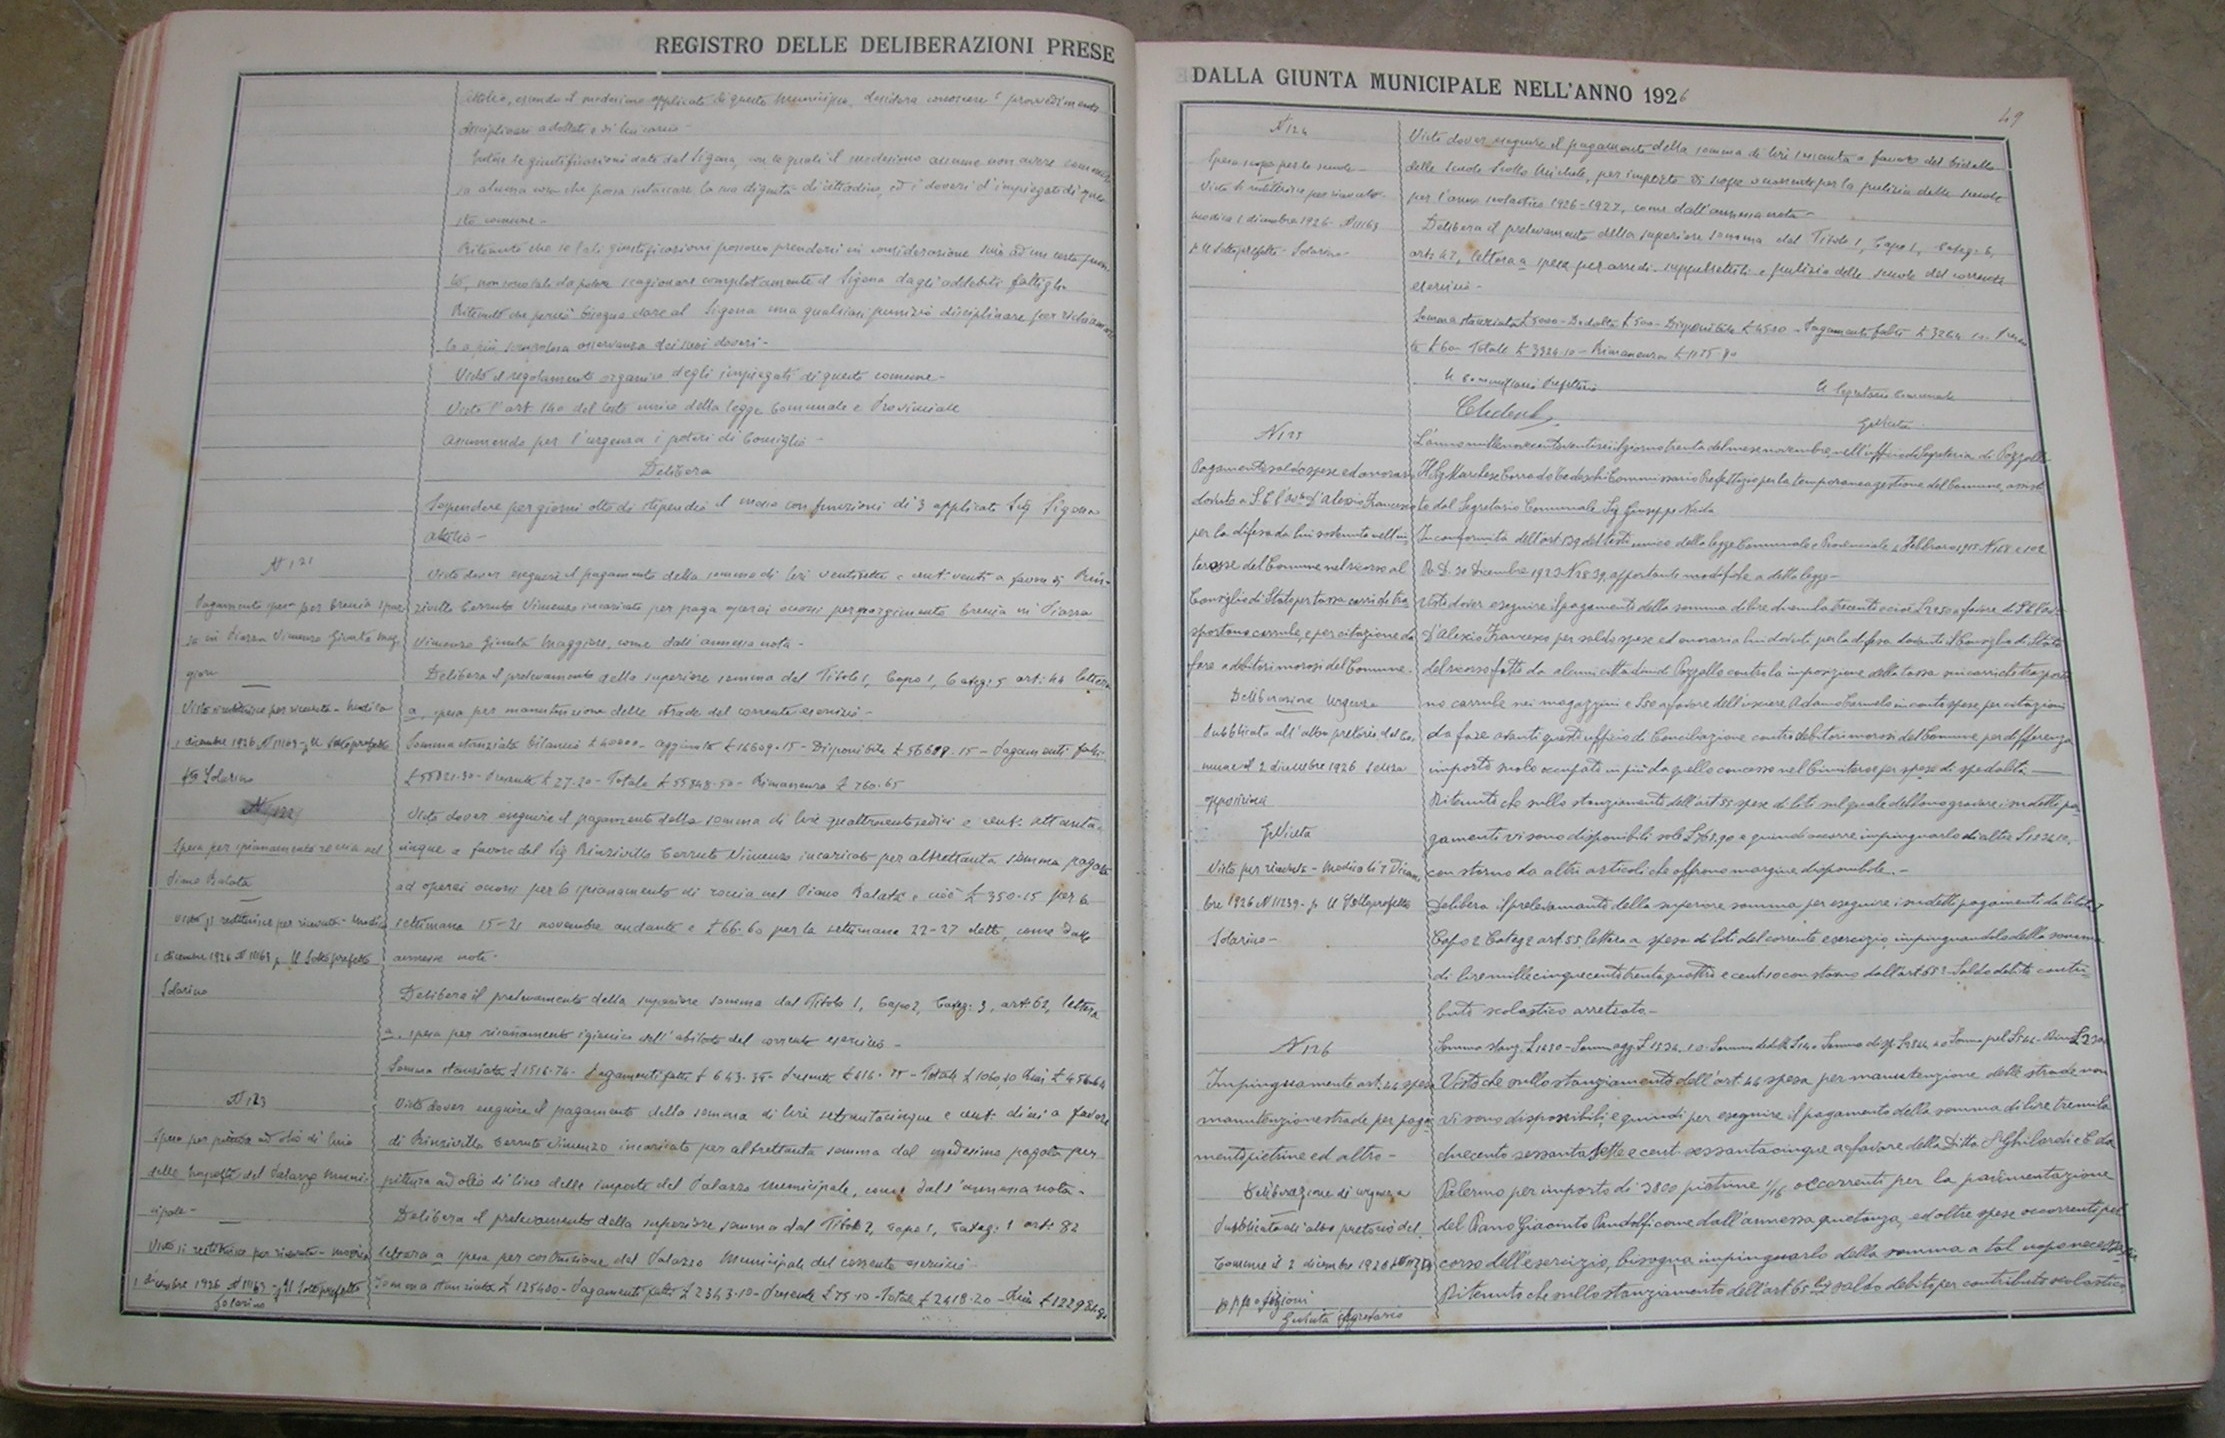 REGISTRO DELLE DELIBERAZIONI PRESE
Attilio, essendo il medesimo applicato di questo Municipio, desidera conoscere i provvedimenti
disciplinari adottati a di lui carico -
le giustificazioni date dal Sigona, con le quali il medesimo assume non avere commes
sa alcuna cosa che possa intaccare la sua dignità di cittadino, ed i doveri d'impiegato di que
sto comune -
Ritenuto che se tali giustificazioni possono prendersi in considerazione sino ad un certo pun
to, non sono tali da potere scagionare completamente il Sigona dagli addebiti fattigli
Ritenuto che perciò bisogna dare al Sigona una qualsiasi punizione disciplinare per richiamar
lo a più scrupolosa osservanza dei suoi doveri -
Visto il regolamento organico degli impiegati di questo comune -
Visto l'art 140 del testo unico della legge Comunale e Provinciale
Assumendo per l'urgenza i poteri di Consiglio -
Delibera
Sospendere per giorni otto di stipendio il messo con funzioni di 3 applicato Sig Sigona
Attilio -
N 121
Pagamento spesa per breccia spar
sa in Piazza Vincenzo Giunta Mag
giore
Visto si restituisce per ricevuta - Modica
1 dicembre 1926 N 11163 - p Il Sottoprefetto
Solarino
Visto dover eseguire il pagamento della somma di lire ventisette e cent. venti a favore di Rin-
zivillo Cerruto Vincenzo incaricato per paga operai occorsi per spargimento breccia in Piazza
Vincenzo Giunta Maggiore, come dall'annessa nota -
Delibera il prelevamento della superiore somma dal Titolo 1, Capo 1, Categ: 5 art: 44 lettera
a, spesa per manutenzione delle strade del corrente esercizio -
Somma stanziata bilancio £ 40000 - aggiunta £ 16609.15 - Disponibile £ 56609.15 - Pagamenti fatti
£ 55821.30 - Presente £ 27.20 - Totale £ 55848.50 - Rimanenza £ 760.65
N 122
Spesa per spianamento roccia nel
Piano Balata
Visto si restituisce per ricevuta - Modica
1 dicembre 1926 N 11163 p Il Sottoprefetto
Solarino
Visto dover eseguire il pagamento della somma di lire quattrocentosedici e cent. settanta-
cinque a favore del Sig Rinzivillo Cerruto Vincenzo incaricato per altrettanta somma pagata
ad operai occorsi per lo spianamento di roccia nel Piano Balata e cioè £ 350.15 per la
settimana 15-21 novembre andante e £ 66.60 per la settimana 22-27 detto, come dalle
annesse note -
Delibera il prelevamento della superiore somma dal Titolo 1, Capo 2, Categ: 3, art: 62, lettera
a, spesa per risanamento igienico dell'abitato del corrente esercizio -
Somma stanziata £ 1516.74 - Pagamenti fatti £ 643.35 - Presente £ 416.75 - Totale £ 1060,10 Rim £ 456.64
N 123
Spesa per pittura ad olio di lino
delle imposte del Palazzo Muni-
cipale -
Visto si restituisce per ricevuta - Modica
1 dicembre 1926 N 11163 - p Il Sottoprefetto
Solarino
Visto dover eseguire il pagamento della somma di lire settantacinque e cent. dieci a favore
di Rinzivillo Cerruto Vincenzo incaricato per altrettanta somma dal medesimo pagata per
pittura ad olio di lino delle imposte del Palazzo Municipale, come dall'annessa nota -
Delibera il prelevamento della superiore somma dal Titolo 2, Capo 1, Categ: 1 art: 82
lettera a spesa per costruzione del Palazzo Municipale del corrente esercizio
Somma stanziata £ 125400 - Pagamenti fatti £ 2343.10 - Presente £ 75.10 - Totale £ 2418.20 - Rim £ 122982
DALLA GIUNTA MUNICIPALE NELL'ANNO 1926
49
N 124
Spesa scope per le scuole -
Visto si restituisce per ricevuta -
Modica 1 dicembre 1926 - N 11163
p Il Sottoprefetto - Solarino -
Visto dover eseguire il pagamento della somma di lire sessanta a favore del bidello
delle Scuole Scollo Michele, per importo di scope occorrenti per la pulizia delle scuole
per l'anno scolastico 1926-1927, come dall'annessa nota -
Delibera il prelevamento della superiore somma dal Titolo 1, Capo 1, Categ: 6,
art: 47, lettera a spesa per arredi suppellettili e pulizia delle scuole del corrente
esercizio -
Somma stanziata £ 5000 - Dedotta £ 500 - Disponibile £ 4500 - Pagamenti fatti £ 3264.10 - Presen
te £ 60 - Totale £ 3324.10 - Rimanenza £ 1175.90
Il Commissario Prefettizio
Il Segretario Comunale
N 125
Pagamento saldo spese ed onorari
dovuto a S.E. l'Avv D'Alessio Francesco
per la difesa da lui sostenuta nell'in
teresse del Comune nel ricorso al
Consiglio di Stato per tassa carri da tra
sporto no carrube, e per citazione da
fare a debitori morosi del Comune.
Deliberazione Urgenza
Pubblicata all'albo pretorio del Co
mune il 2 dicembre 1926 senza
opposizioni
G Nicita
Visto per ricevuta - Modica li 7 Dicem
bre 1926 N 11239 - p Il Sottoprefetto
Solarino -
L'anno millenovecentoventisei il giorno trenta del mese novembre, nell'ufficio di Segreteria di Pozzallo
Il Sig Marchese Corrado Tedeschi Commissario Prefettizio per la temporanea gestione del Comune, assisti
to dal Segretario Comunale Sig Giuseppe Nicita
In conformità dell'art 139 del testo unico della legge Comunale e Provinciale 4 Febbraro 1915 N 148 e 102
R. D. 30 Dicembre 1923 N 2839, apportante modifiche a detta legge -
Visto dover eseguire il pagamento della somma di lire duemilatrecento e cioè L 2250 a favore di S.E. l'avv
D'Alessio Francesco per saldo spese ed onorari a lui dovuti per la difesa davanti il Consiglio di Stato
del ricorso fatto da alcuni cittadini di Pozzallo contro la imposizione della tassa sui carri che traspor
no carrube nei magazzini e L 50 a favore dell'usciere Adamo Carmelo in conto spese per citazioni
da fare avanti questo ufficio di Conciliazione contro debitori morosi del Comune per differenza
importo suolo occupato in più da quello concesso nel Cimitero e per spese di spedalità
Ritenuto che sullo stanziamento dell'art 55 spese di liti sul quale debbono gravare i sudetti pa
gamenti vi sono disponibili sole L 765,90 e quindi occorre impinguarlo di altre L 1534.10,
con storno da altri articoli che offrono margine disponibile. -
Delibera il prelevamento della superiore somma per eseguire i sudetti pagamenti da Titolo 1
Capo 2 Categ 2 art. 55 lettera a spesa di liti del corrente esercizio impinguandolo della somma
di lire millecinquecentotrentaquattro e cent 10 con storno dall'art 65 Saldo debito contri-
buto scolastico arretrato -
N 126
Impinguamento art. 44 spesa
manutenzione strade per paga
mento pietrine ed altro -
Deliberazione di urgenza
Pubblicata all'albo pretorio del
Comune il 2 dicembre 1926 senza
opposizioni
Segretario
Visto che sullo stanziamento dell'art. 44 spesa per manutenzione delle strade non
vi sono disponibili, e quindi per eseguire il pagamento della somma di lire tremila
duecento sessantasette e cent. sessantacinque a favore della Ditta Ghilardi e C. da
Palermo per importo di 3800 pietrine 1/16 occorrenti per la pavimentazione
del Piano Giacinto Pandolfi come dall'annessa quietanza, ed oltre spese occorrenti pel
corso dell'esercizio, bisogna impinguarlo della somma a tal uopo necessaria
Ritenuto che sullo stanziamento dell'art 65 saldo debito per contributo scolastico